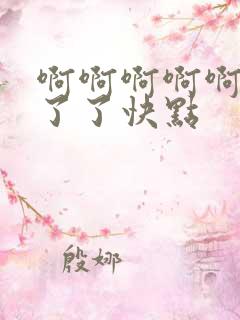 啊啊啊啊啊
了了快點
殷娜